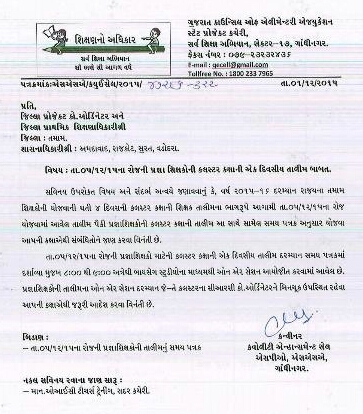 શિક્ષણનો અધિકાર
સર્વ શિક્ષા અભિયાન
સૌ ભણે સૌ આગળ વધે
ગુજરાત કાઉન્સિલ ઓફ એલીમેન્ટરી એજયુકેશન
સ્ટેટ પ્રોજેક્ટ કચેરી,
સર્વ શિક્ષા અભિયાન, સેક્ટર-૧૭, ગાંધીનગર.
ફેક્સ નંબર : ૦૭૯-૨૩૨૩૨૪૩૬
email : gecell@gmail.com
Tollfree No. : 1800 233 7965
પત્રક્રમાંક:એસએસએ/કયુઈસેલ/૨૦૧૫/
તા.૦૧/૧૨/૨૦૧૫
પ્રતિ,
જિલ્લા પ્રોજેક્ટ કો.ઓર્ડિનેટર અને
જિલ્લા પ્રાથમિક શિક્ષણાધિકારીશ્રી
જિલ્લા - તમામ.
શાસનાધિકારીશ્રી : અમદાવાદ, રાજકોટ, સુરત, વડોદરા.
વિષય : તા.૦૫/૧૨/૧૫ના રોજની પ્રજ્ઞા શિક્ષકોની કલસ્ટર કક્ષાની એક દિવસીય તાલીમ બાબત.
સવિનય ઉપરોક્ત વિષય અને સંદર્ભ અન્વયે જણાવવાનું કે, વર્ષ ૨૦૧૫-૧૬ દરમ્યાન રાજ્યના તમામ
શિક્ષકોની યોજવાની થતી ૪ દિવસની કલસ્ટર કક્ષાની શિક્ષક તાલીમના ભાગરૂપે આગામી તા.૦૫/૧૨/૧૫ના રોજ
યોજવામાં આવેલ તાલીમ પૈકી પ્રજ્ઞાશિક્ષકોની કલસ્ટર કક્ષાની તાલીમ આ સાથે સામેલ સમય પત્રક અનુસાર યોજવા
આપની કક્ષાએથી સંબંધિતોને જાણ કરવા વિનંતી છે.
તા.૦૫/૧૨/૧૫ના રોજની પ્રજ્ઞાશિક્ષકો માટેની કલસ્ટર કક્ષાની એક દિવસીય તાલીમ દરમ્યાન સમય પત્રકમાં
દર્શાવ્યા મુજબ ૮:૦૦ થી ૯:૦૦ અત્રેથી બાયસેગ સ્ટુડીયોના માધ્યમથી ઓન એર સેશન આયોજીત કરવામાં આવેલ છે.
પ્રજ્ઞાશિક્ષકોની તાલીમના ઓન એર સેશન દરમ્યાન જે-તે કલસ્ટરના સીઆરસી કો.ઓર્ડિનેટરને બિનચૂક ઉપસ્થિત રહેવા
આપની કક્ષાએથી જરૂરી આદેશ કરવા વિનંતી છે.
બિડાણ :
- તા.૦૫/૧૨/૧૫ના રોજની પ્રજ્ઞાશિક્ષકોની તાલીમનું સમય પત્રક
કન્વીનર
ક્વોલીટી એન્હાન્સમેન્ટ સેલ
એસપીઓ, એસએસએ,
ગાંધીનગર.
નકલ સવિનય રવાના જાણ સારૂ :
- માન.ઓઆઈસી ટીચર્સ ટ્રેનીંગ, સદર કચેરી.